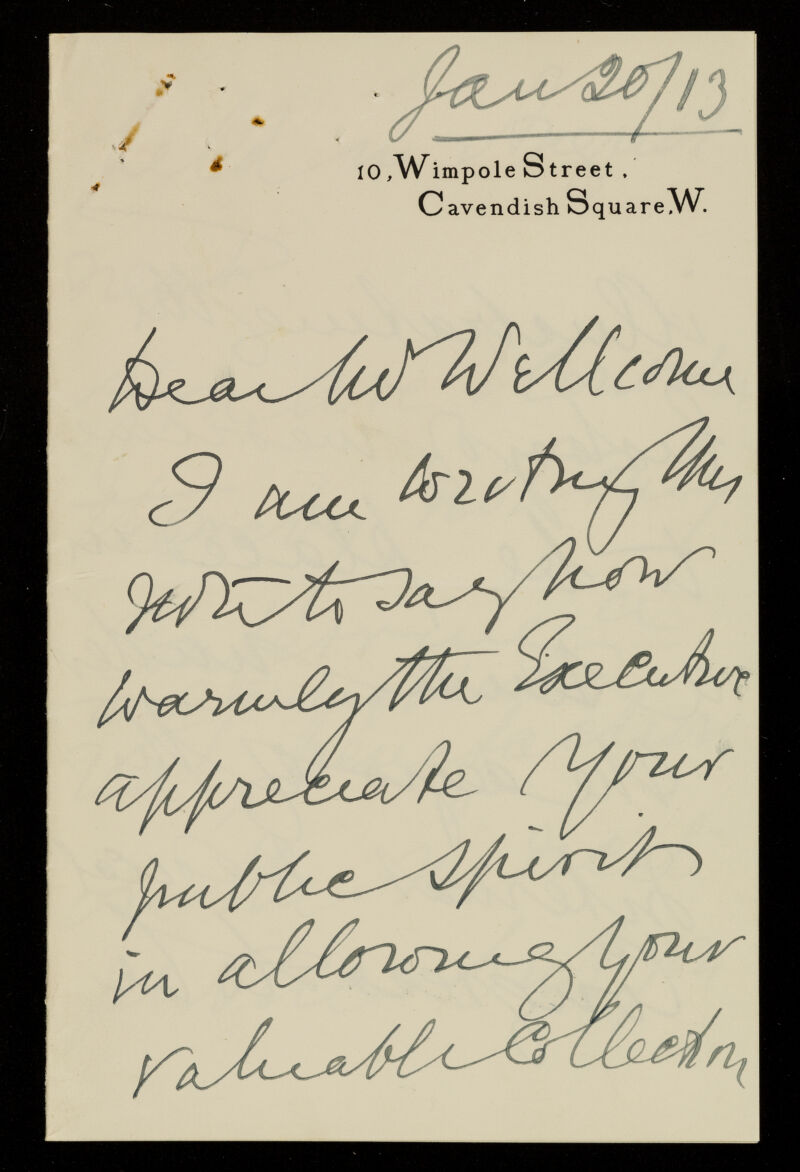 Jan 20/13
10, Wimpole Street,
Cavendish Square, W.
Dear Mr Wellcome
I am writing this
note to say how
warmly the Executive
appreciate your
public spirit
in allowing your
valuable Collection